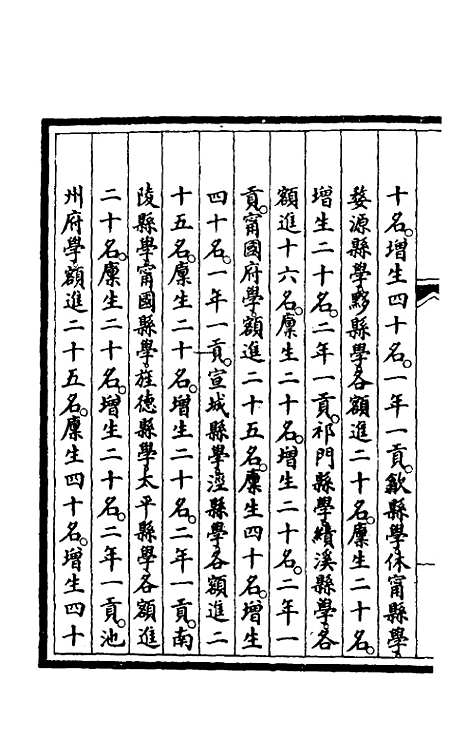 十名。增生四十名。一年一貢。歙縣學、休甯縣學、
婺源縣學、黟縣學、各額進二十名。廩生二十名。
增生二十名。二年一貢。祁門縣學、績溪縣學、各
額進十六名。廩生二十名。增生二十名。二年一
貢。甯國府學、額進二十五名。廩生四十名。增生
四十名。一年一貢。宣城縣學、涇縣學、各額進二
十五名。廩生二十名。增生二十名。二年一貢。南
陵縣學、甯國縣學、旌德縣學、太平縣學、各額進
二十名。廩生二十名。增生二十名。二年一貢。池
州府學、額進二十五名。廩生四十名。增生四十